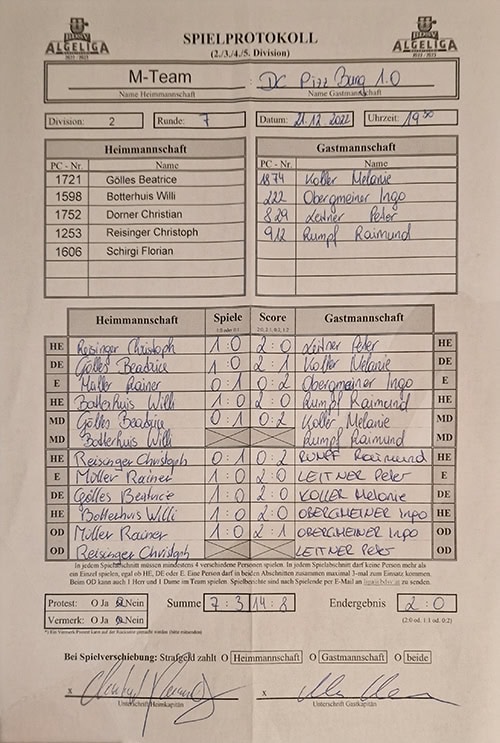 ALGELIGA
SPIELPROTOKOLL
ALGELIGA
(2./3./4./5. Division)
M-Team DC Pizz Burg 1.0
Name Heimmannschaft Name Gastmannschaft
Division: 2 Runde: 7 Datum: 21.12 2022 Uhrzeit: 19 30
Heimmannschaft Gastmannschaft
PC - Nr. Name PC - Nr. Name
1721 Gölles Beatrice 1874 Koller Melanie
1598 Botterhuis Willi 222 Obergmeiner Ingo
1752 Dorner Christian 829 Leitner Peter
1253 Reisinger Christoph 912 Rumpf Raimund
1606 Schirgi Florian
Heimmannschaft Spiele Score Gastmannschaft
1:0 oder 0:1 2:0, 2:1, 0:2, 1:2
HE Reisinger Christoph 1 : 0 2 : 0 Leitner Peter HE
DE Gölles Beatrice 1 : 0 2 : 1 Koller Melanie DE
E Müller Rainer 0 : 1 0 : 2 Obergmeiner Ingo E
HE Botterhuis Willi 1 : 0 2 : 0 Rumpf Raimund HE
MD Gölles Beatrice 0 : 1 0 : 2 Koller Melanie MD
MD Botterhuis Willi Rumpf Raimund MD
HE Reisinger Christoph 0 : 1 0 : 2 RUMPF Raimund HE
E Müller Rainer 1 : 0 2 : 0 LEITNER Peter E
DE Gölles Beatrice 1 : 0 2 : 0 KOLLER Melanie DE
HE Botterhuis Willi 1 : 0 2 : 0 OBERGMEINER Ingo HE
OD Müller Rainer 1 : 0 2 : 1 OBERGMEINER Ingo OD
OD Reisinger Christoph LEITNER Peter OD
In jedem Spielabschnitt müssen mindestens 4 verschiedene Personen spielen. In jedem Spielabschnitt darf keine Person mehr als
ein Einzel spielen, egal ob HE, DE oder E. Eine Person darf in beiden Abschnitten zusammen maximal 3-mal zum Einsatz kommen.
Beim OD kann auch 1 Herr und 1 Dame im Team spielen. Spielberichte sind nach Spielende per E-Mail an zu senden.
Protest: O Ja O Nein Summe 7 : 3 14 : 8 Endergebnis 2 : 0
Vermerk: O Ja O Nein (2:0 od. 1:1 od. 0:2)
*) Ein Vermerk/Protest kann auf der Rückseite gemacht werden (bitte umblättern)
Bei Spielverschiebung: Strafgeld zahlt O Heimmannschaft O Gastmannschaft O beide
x x
Unterschrift Heimkapitän Unterschrift Gastkapitän